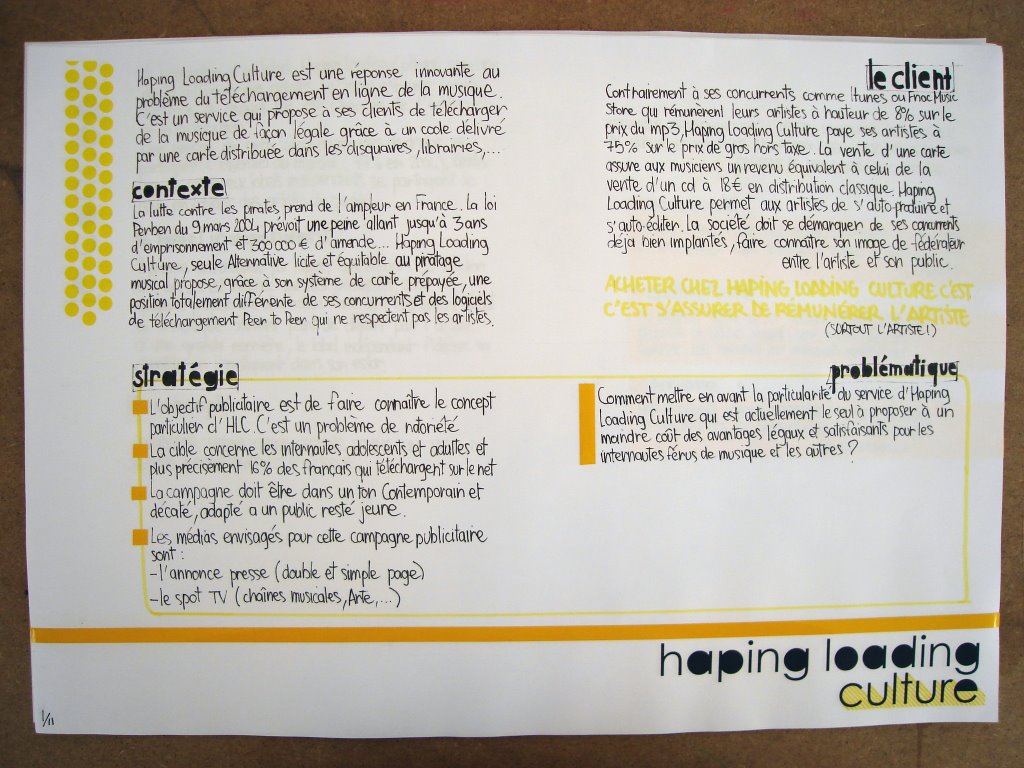 Haping Loading Culture est une réponse innovante au
problème du téléchargement en ligne de la musique.
C'est un service qui propose à ses clients de télécharger
de la musique de façon légale grâce à un code délivré
par une carte distribuée dans les disquaires, librairies,...
contexte
La lutte contre les pirates prend de l'ampleur en France. La loi
Perben du 9 mars 2004 prévoit une peine allant jusqu'à 3 ans
d'emprisonnement et 300 000 € d'amende... Haping Loading
Culture, seule Alternative licite et équitable au piratage
musical propose, grâce à son système de carte prépayée, une
position totalement différente de ses concurrents et des logiciels
de téléchargement Peer to Peer qui ne respectent pas les artistes.
le client
Contrairement à ses concurrents comme Itunes ou Fnac Music
Store qui rémunèrent leurs artistes à hauteur de 8% sur le
prix du mp3, Haping Loading Culture paye ses artistes à
75% sur le prix de gros hors taxe. La vente d'une carte
assure aux musiciens un revenu équivalent à celui de la
vente d'un cd à 18€ en distribution classique. Haping
Loading Culture permet aux artistes de s'auto-produire et
s'auto-éditer. La société doit se démarquer de ses concurrents
déjà bien implantés, faire connaître son image de fédérateur
entre l'artiste et son public.
ACHETER CHEZ HAPING LOADING CULTURE C'EST
C'EST S'ASSURER DE RÉMUNÉRER L'ARTISTE
(SURTOUT L'ARTISTE!)
stratégie
L'objectif publicitaire est de faire connaître le concept
particulier d'HLC. C'est un problème de notoriété
La cible concerne les internautes adolescents et adultes et
plus précisément 16% des français qui téléchargent sur le net
La campagne doit être dans un ton Contemporain et
décalé, adapté a un public resté jeune.
Les médias envisagés pour cette campagne publicitaire
sont :
-l'annonce presse (double et simple page)
-le spot TV (chaînes musicales, Arte,...)
problématique
Comment mettre en avant la particularité du service d'Haping
Loading Culture qui est actuellement le seul à proposer à un
moindre coût des avantages légaux et satisfaisants pour les
internautes férus de musique et les autres ?
haping loading
culture
1/11